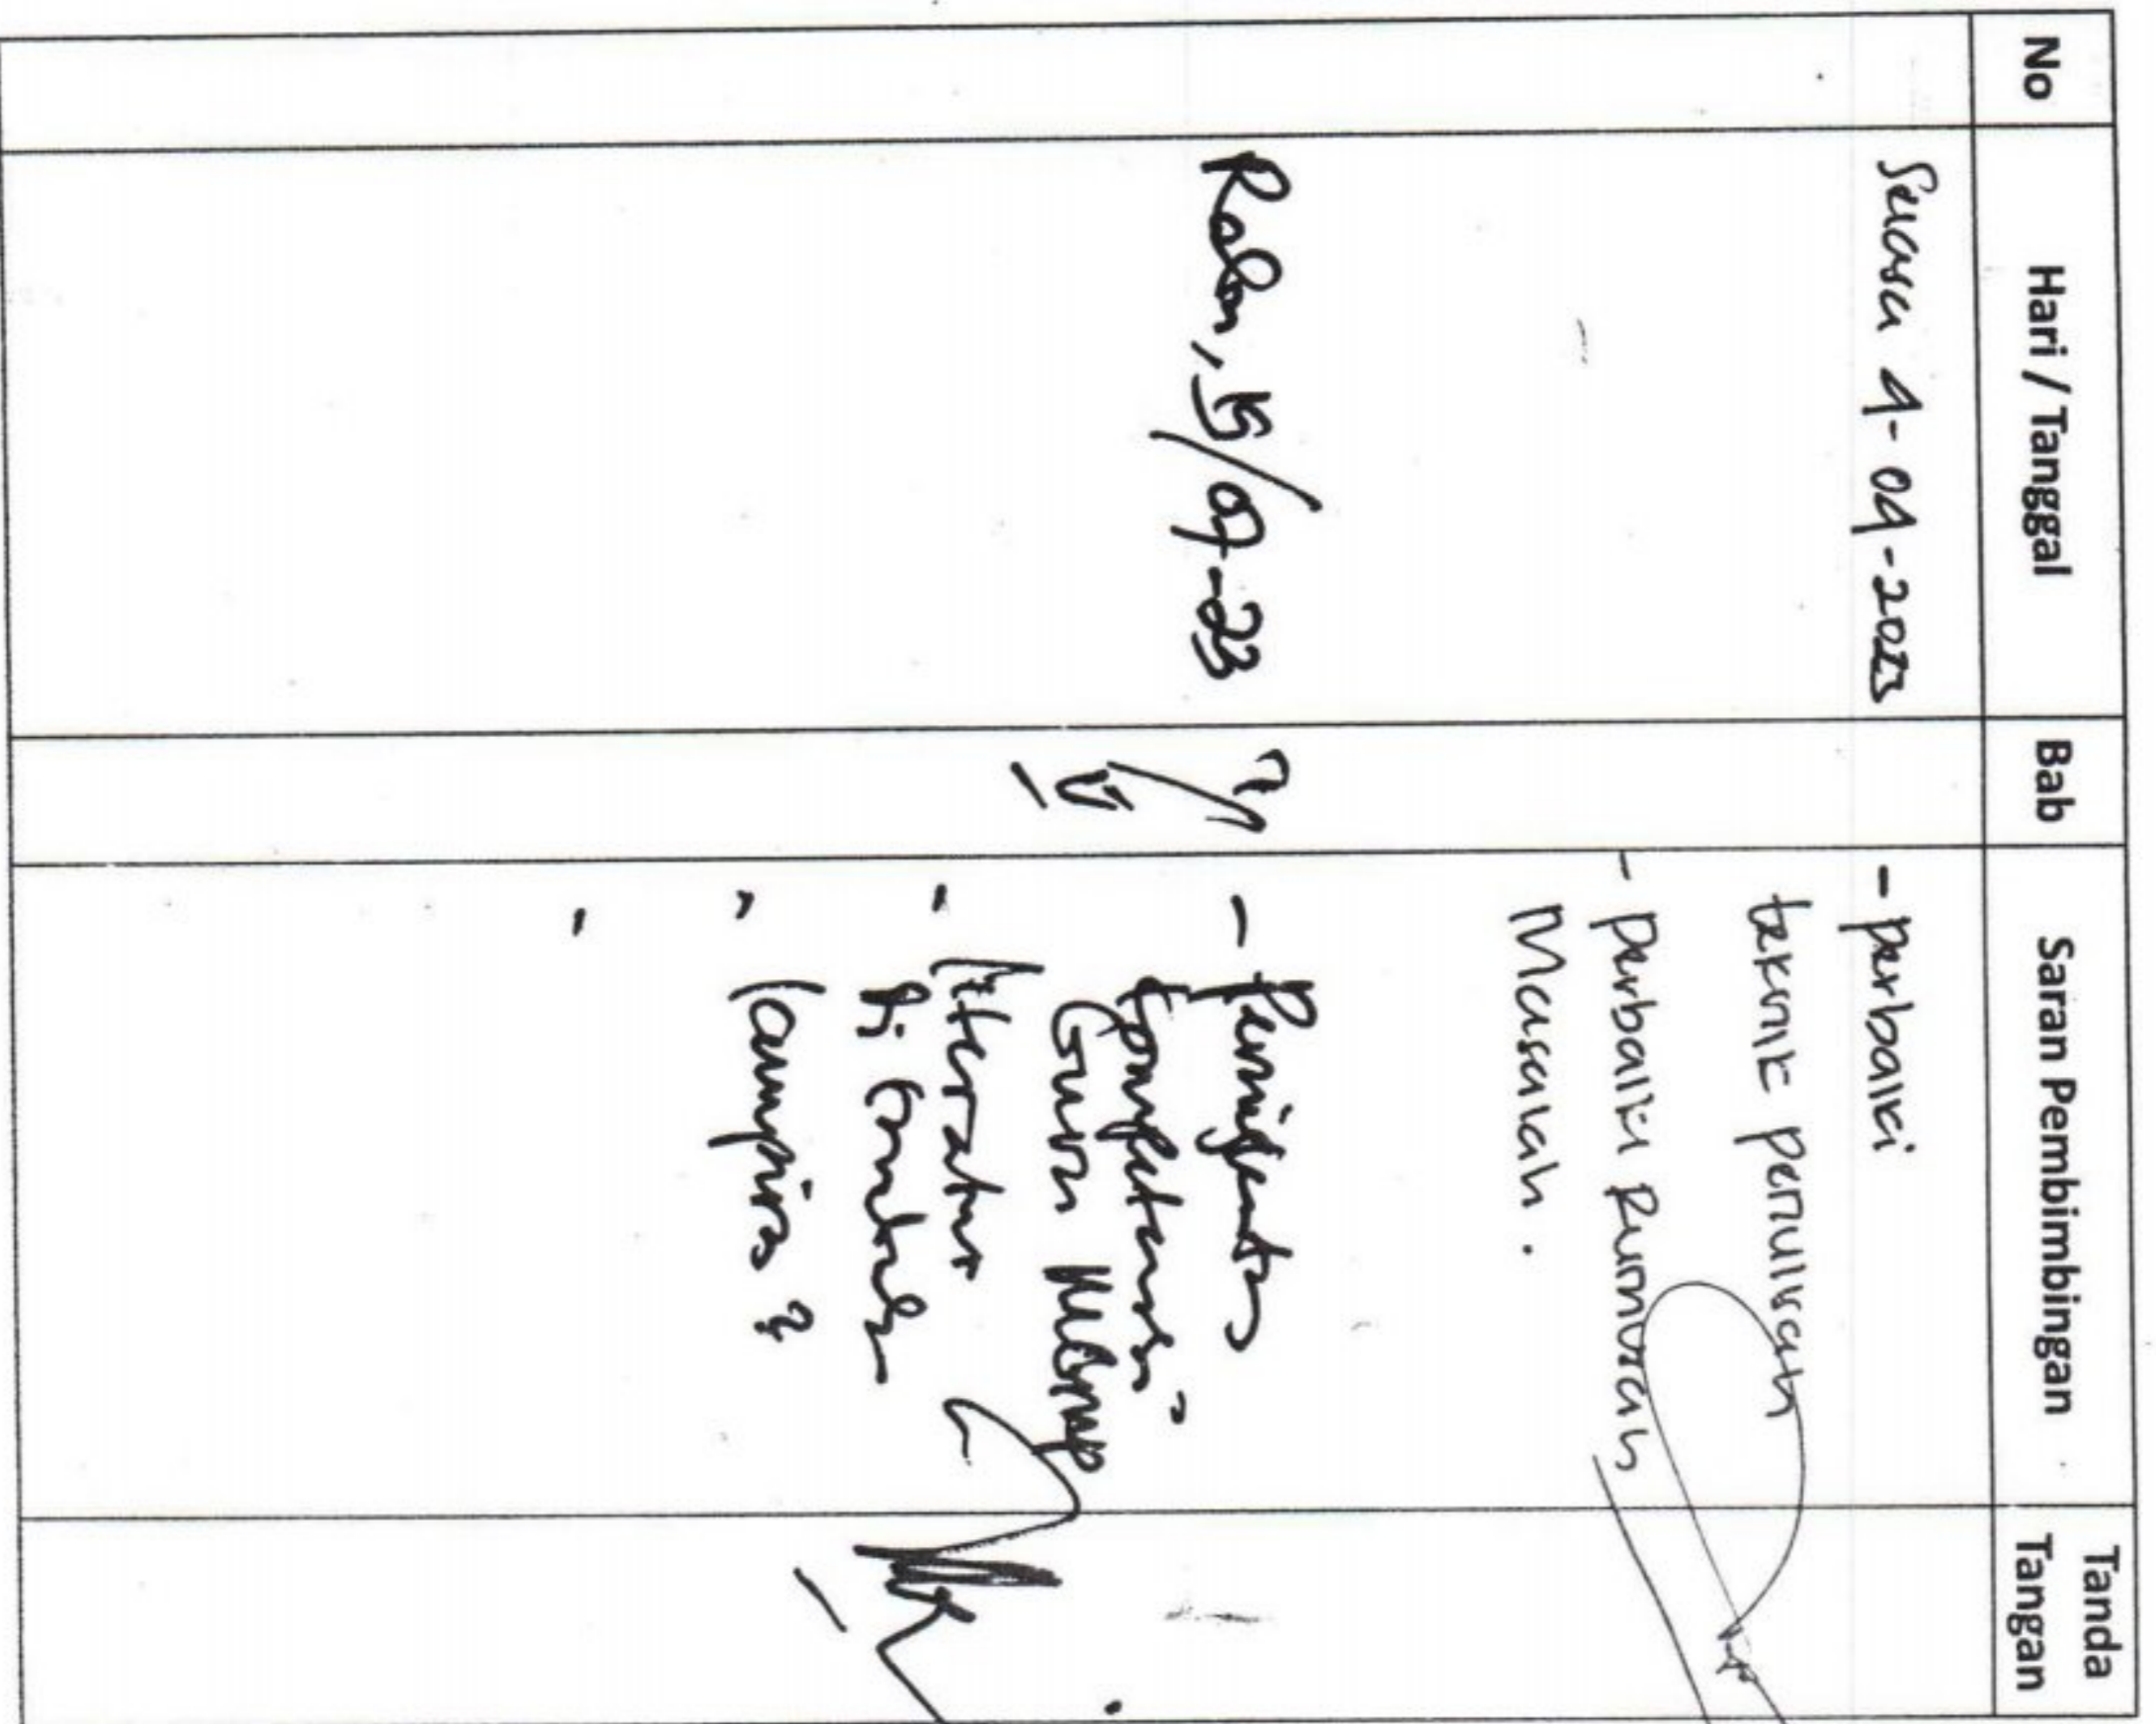 No Hari / Tanggal Bab Saran Pembimbingan Tanda Tangan
Selasa 4-04-2023 - perbaiki
teknik penulisan
- perbaiki Rumusan
Masalah.
Rabu, 15/07-23 -
Kompetensi
Guru
- literatur
di
- lampiran
-